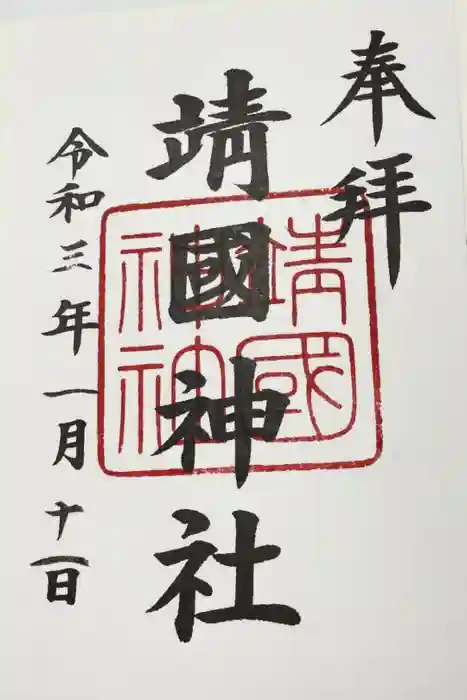 奉拝
靖國神社
靖國
令和三年一月十一日